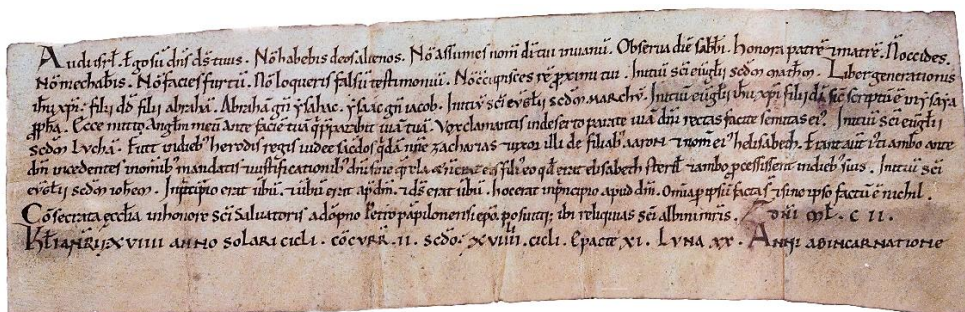 Audi isrl. Ego sū dñs ds tuus. Nō habebis deos alienos. Nō assumes nom̄ di tui in uanū. Observa diē sabbi. Honora patrē & matrē. Nōccides.
Nō mechabis. Nō facies furtū. Nō loqueris falsū testimoniū. Nō cōcupisces rē proximi tui. Initiū sci euglii scdm mathm. Liber generationis
ihu xpi. filii dd filii abrahā. Abrahā gñ ysahac. ysaac gñ iacob. Initiū sci evglii scdm marchū. Initiū euglii ihu xpi filii di sic scriptū ē in ysaya
ppha. Ecce mitto anglm meū ante faciē tuā q̄ pparabit uiā tuā. Vox clamantis in deserto parate uiā dñi rectas facite semitas ei'. Initiū sci euglii
scdm lychā. Fuit in dieb' herodis regis iudee sacdos qdā nñe zacharias & uxor illi de filiab' aaron & nom̄ ei' helisabeth. Erant aut̄ iusti ambo ante
dm incedentes in omib' mandatis & iustificationib' dñi sine qrela & ñ erat eis fili' eo qd erat elisabeth sterilˀ & ambo pcessissent in dieb' suis. Initiū sci
evglii scdm iohem. In pncipio erat ubū. & ubū erat apd dm. & ds erat ubū. hoc erat in pncipio apud dm. Omia p ipsū facta st & sine ipso factū ē nichil.
Cōsecrata ecclia in honore sci salvatoris a dōpno Petro papilonensi epo. posuitq; ibi reliquias sci albini mris. Dōni ml. C II.
Kl ianrii. XVIIII anno solari cicli. cōcurr. II. scdo. XVIIII. cicli. Epacte XI. Luna XX. Anni ab incarnatione